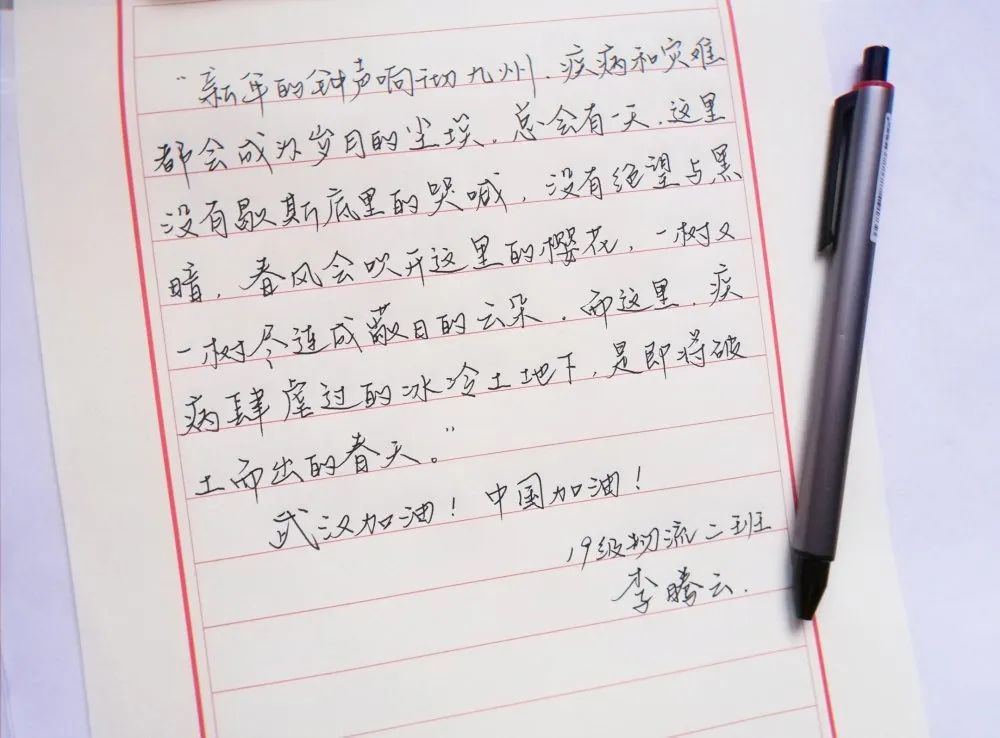 “新年的钟声响彻九州,疾病和灾难
都会成为岁月的尘埃。总会有一天,这里
没有歇斯底里的哭喊,没有绝望与黑
暗,春风会吹开这里的樱花,一树又
一树尽连成蔽日的云朵,而这里,疾
病肆虐过的冰冷土地下,是即将破
土而出的春天。”
武汉加油!中国加油!
19级物流二班
李腾云.